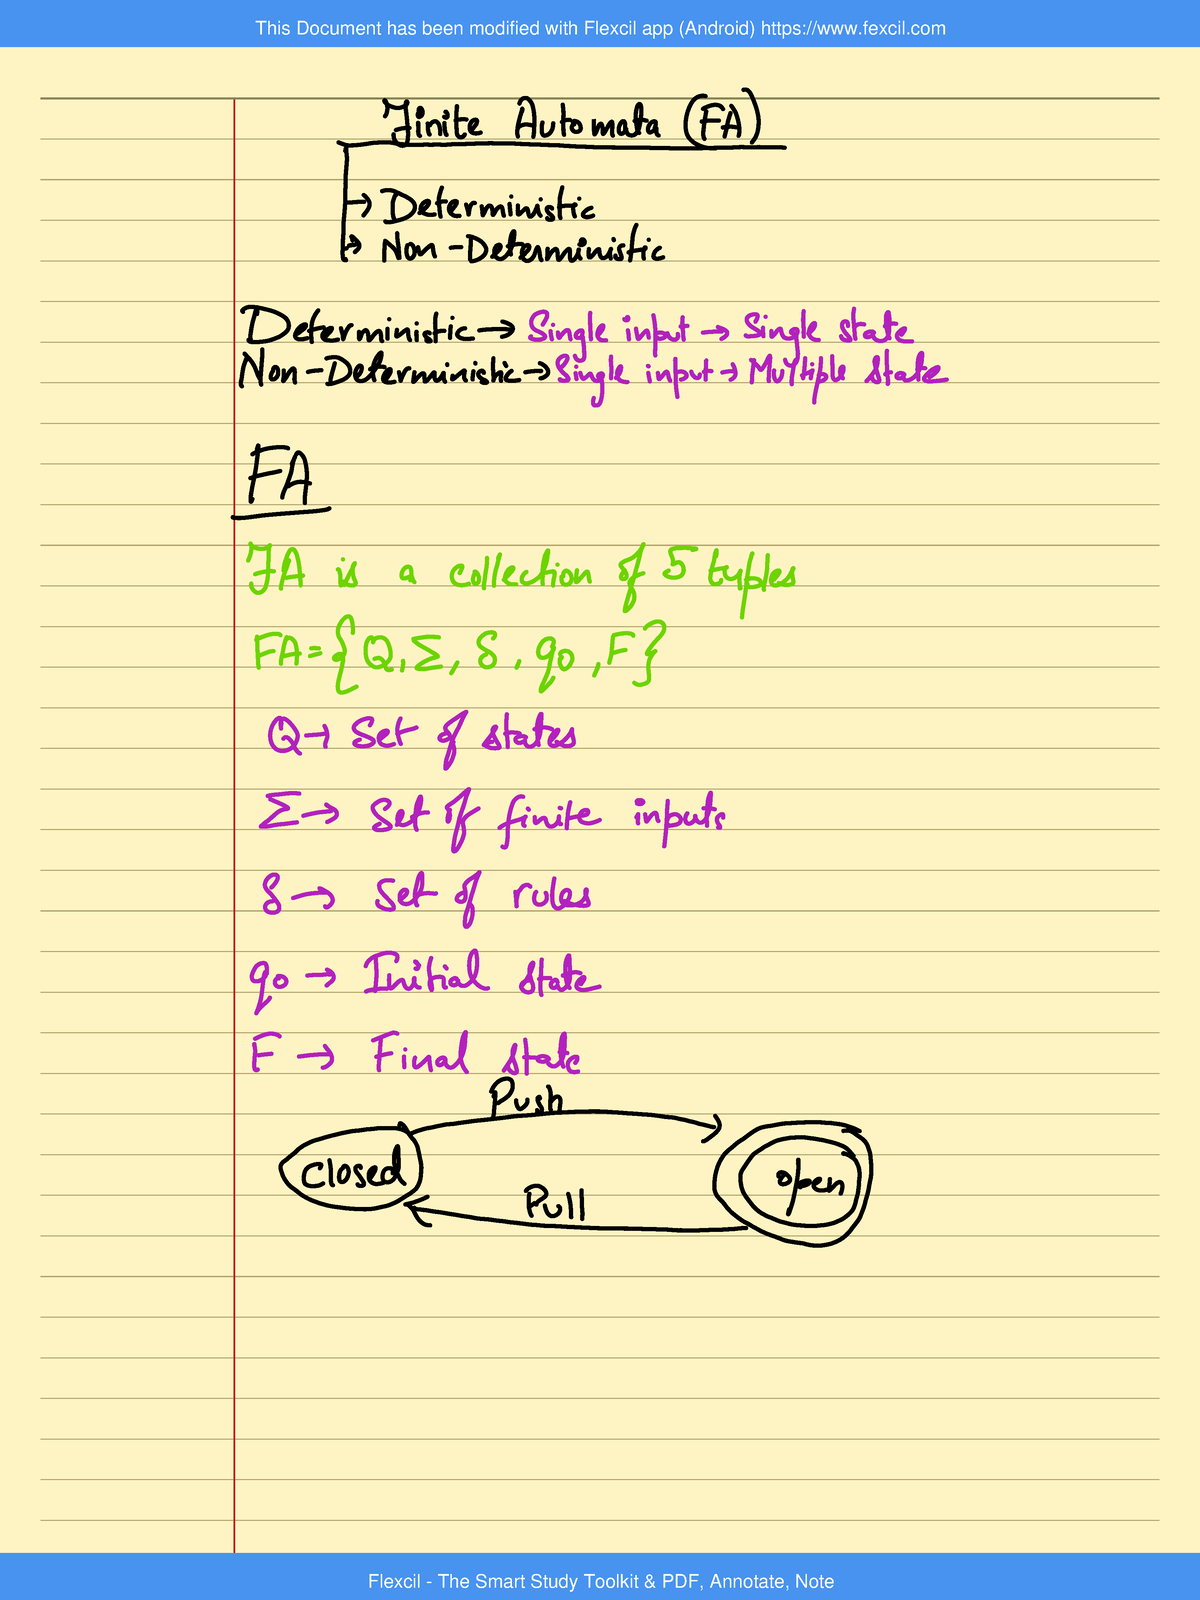 This Document has been modified with Flexcil app (Android) https://www.fexcil.com
Finite Automata (FA)
→ Deterministic
→ Non-Deterministic
Deterministic → Single input → Single state
Non-Deterministic → Single input → Multiple state
FA
FA is a collection of 5 tuples
FA = {Q, Σ, δ, q0, F}
Q → Set of states
Σ → Set of finite inputs
δ → Set of rules
q0 → Initial state
F → Final state
Push
Closed
open
Pull
Flexcil - The Smart Study Toolkit & PDF, Annotate, Note